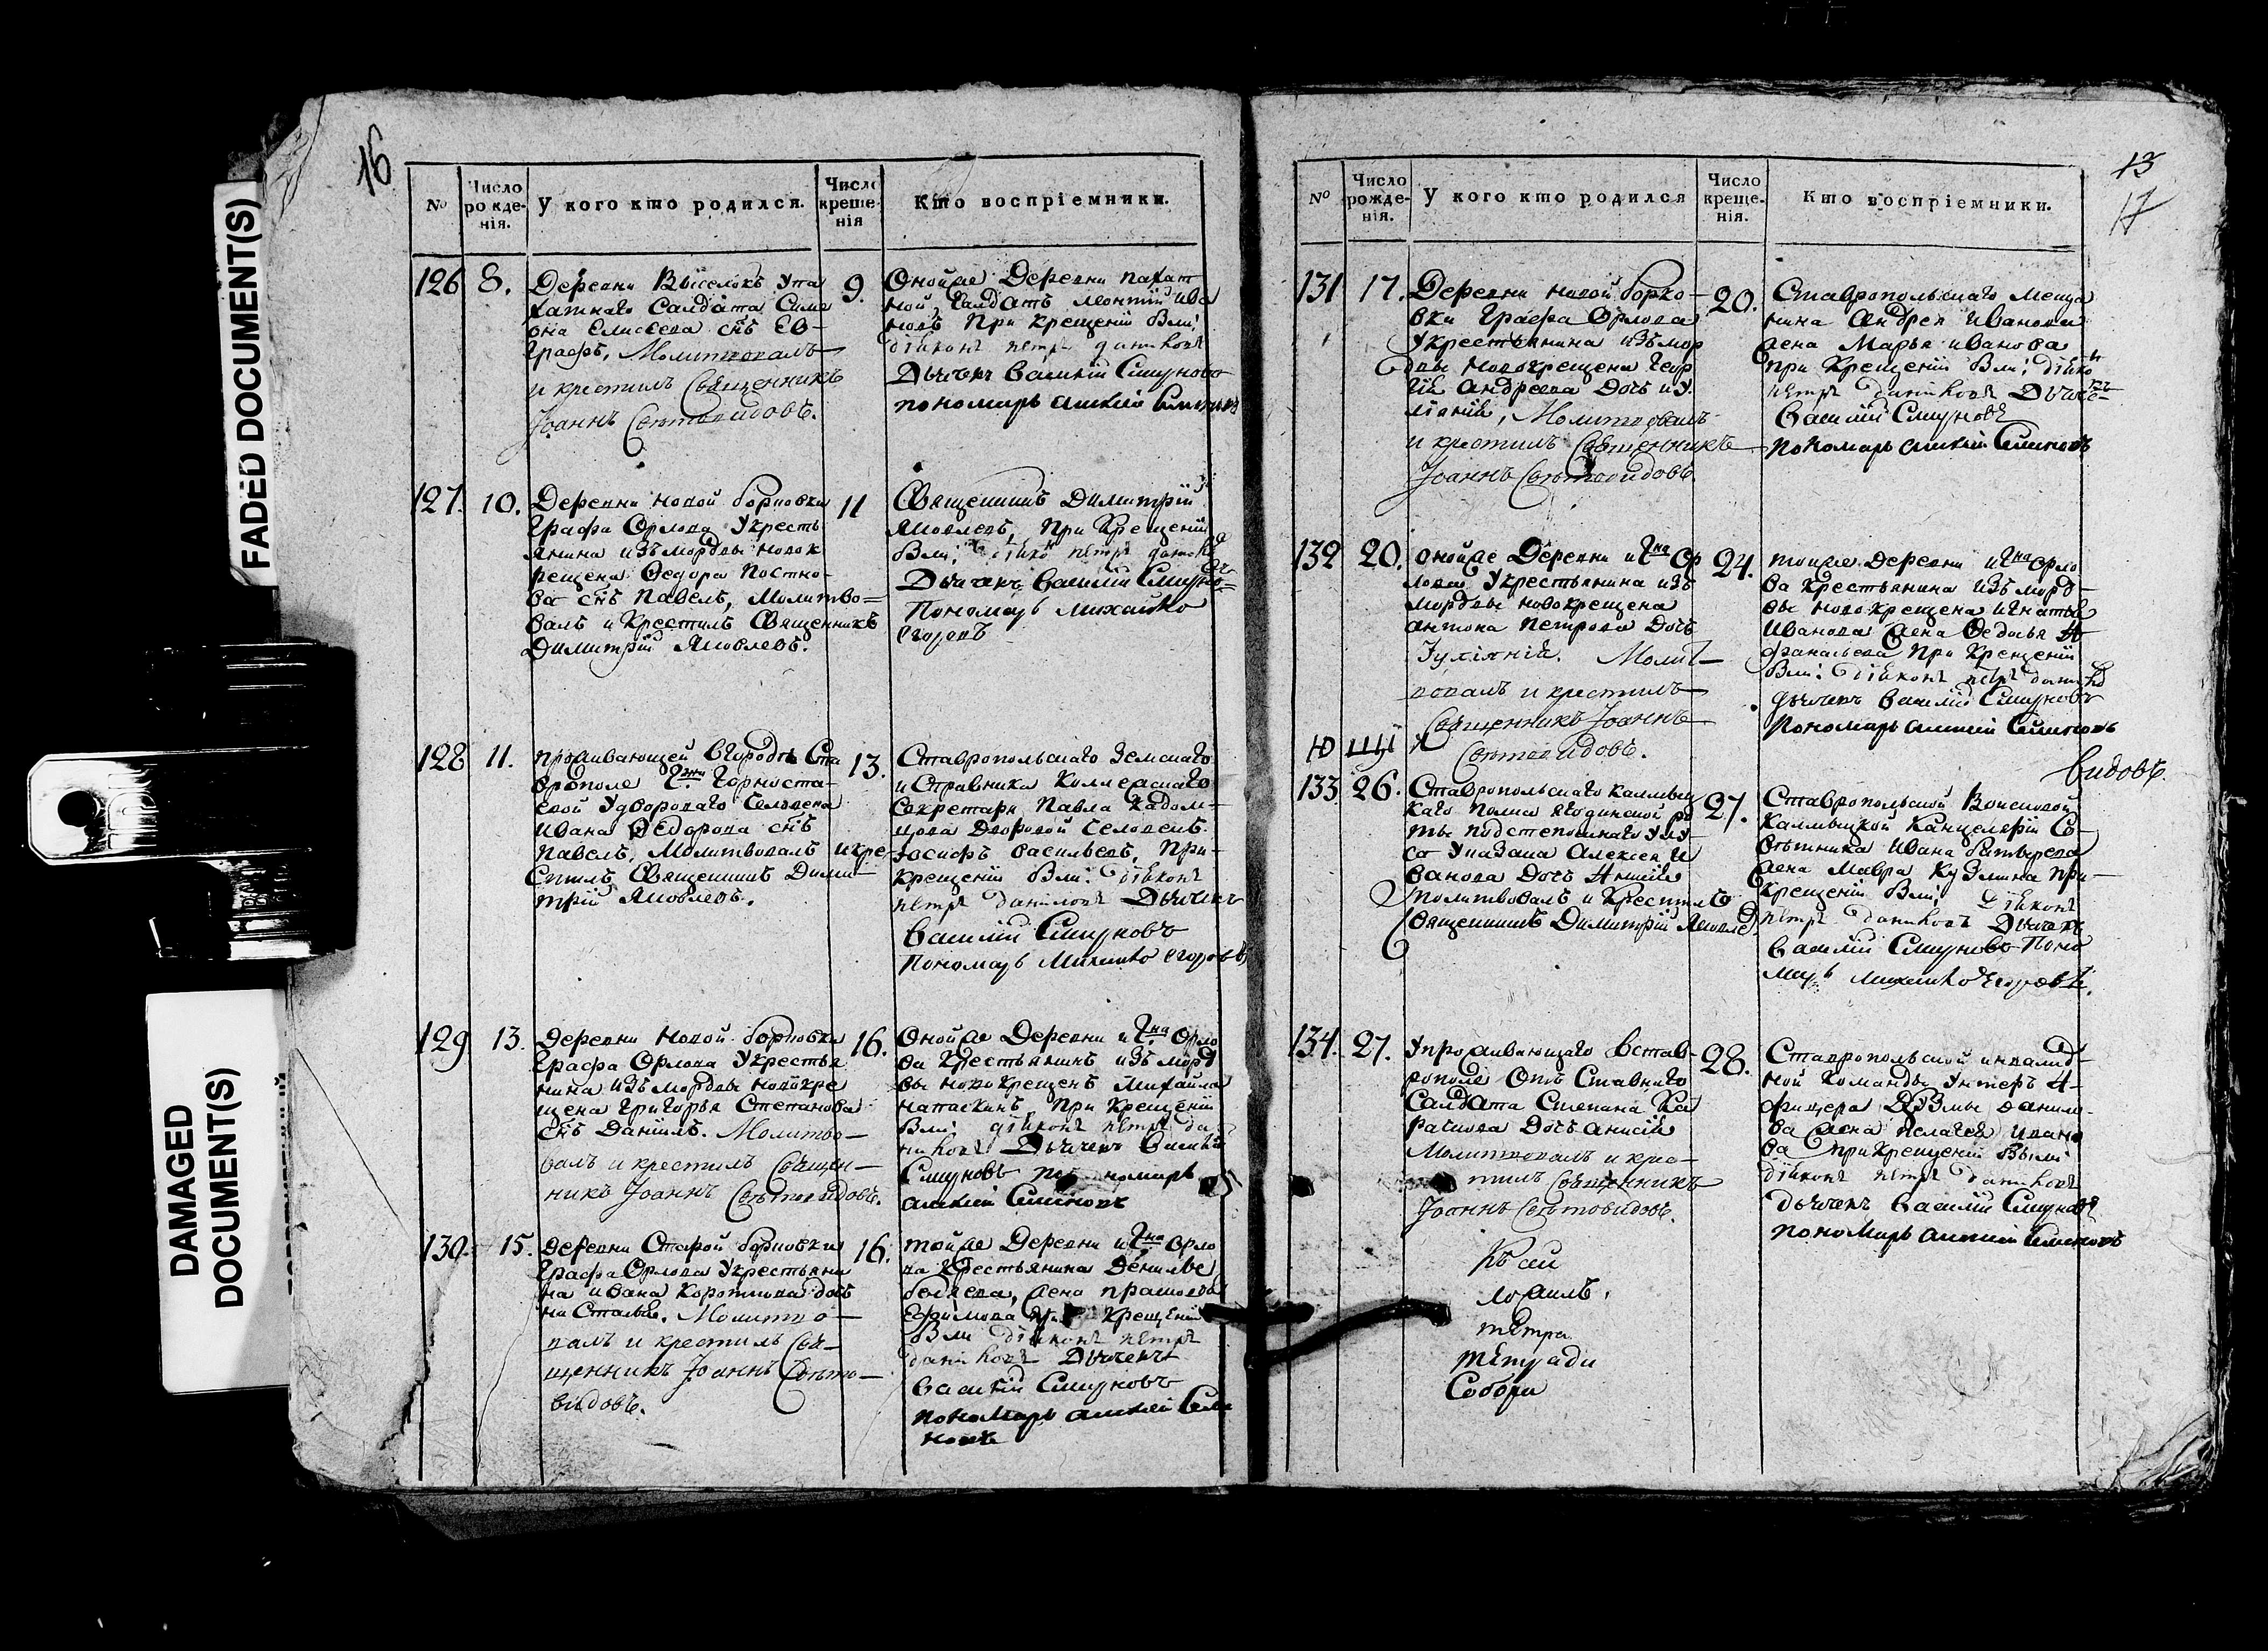 FADED DOCUMENT(S)
DAMAGED
DOCUMENT(S)
16
№
Число рождения.
У кого кто родился.
Число крещенія
Кто воспріемники.
126
8.
Деревни Выселокъ у па
хатнаго Салдата Симе
она Елисеева снъ Ев-
графъ, Молитвовалъ
и крестилъ Священникъ
Іоаннъ Свѣтовидовъ.
9.
Оной же Деревни пахат
ной Салдатъ Леонтій Ива
новъ При крещеніи были
діяконъ петръ даниловъ
Дьячекъ Василій Смирновъ
пономарь алексѣй Семеновъ
127.
10.
Деревни новой борковки
Графа Орлова У кресть
янина изъ мордвы новок
рещена Федора Постно-
ва снъ Павелъ, Молитво=
валъ и Крестилъ Священникъ
Димитрій Яковлевъ.
11
Священникъ Димитрій
Яковлевъ, При Крещеніи
были: діяко петръ данилов
Дьячекъ Василій Смирно=
Пономарь Михайло
егоровъ
128
11.
проживающей в городѣ Ста
врополе Г:жи Горноста-
евой У двороваго Человека
Ивана Федорова снъ
Павелъ, Молитвовалъ и кре-
стилъ Священникъ Дими-
трій Яковлевъ.
13.
Ставропольскаго Земскаго
исправника Коллежскаго
Секретаря Павла Кадом-
цова Дворовой Человекъ
Іосифъ Васильевъ, При-
крещеніи Были: діяконъ
петръ даниловъ Дьячекъ
Василій Смирновъ
Пономарь Михайло егоровъ
129
13.
Деревни Новой борковки
Графа Орлова У крестья
нина изъ мордвы новокре
щена Григорья Степанова
снъ Даніилъ. Молитво-
валъ и крестилъ Священ-
никъ Іоаннъ Свѣтовидовъ.
16.
Оной же Деревни и Г:на Орло
ва Крестьянинъ изъ морд
вы новокрещенъ Михайла
При Крещеніи
Были діяконъ петръ да
ниловъ Дьячекъ Василій
Смирновъ пономарь
алексѣй Семеновъ
130.
15.
Деревни Старой борковки
Графа Орлова У крестьяни
на Ивана Короткова дочь
Молитво-
валъ и крестилъ Свя-
щенникъ Іоаннъ Свѣто-
видовъ.
16.
той же Деревни и Г:на Орло
ва Крестьянина
жена
Ефимова при Крещеніи
Были діяконъ петръ
даниловъ Дьячекъ
Василій Смирновъ
пономарь алексѣй Семе
новъ
13
17
№
Число рожденія.
У кого кто родился
Число крещенія.
Кто воспріемники.
131
17.
Деревни Новой борко-
вки Графа Орлова
У крестьянина изъ мор
двы Новокрещена Геор
гія Андреева Дочь Иу
ліанія, Молитвовалъ
и крестилъ Священникъ
Іоаннъ Свѣтовидовъ.
20.
Ставропольскаго Меща
нина Андрея Иванова
жена Марья Иванова
при Крещеніи Были: діяко
петръ даниловъ Дьячекъ
Василій Смирновъ
пономарь алексѣй Семеновъ
132
20.
оной же Деревни и Г:на Ор
лова У крестьянина изъ
мордвы новокрещена
антона Петрова Дочь
Іуліянія. Молит-
вовалъ и крестилъ
Священникъ Іоаннъ
Свѣтовидовъ.
24.
той же Деревни и Г:на Орло
ва Крестьянина изъ морд-
вы новокрещена Игнатья
Иванова жена Федосья А-
фанасьева При Крещеніи
Были: діяконъ петръ данилов
дьячекъ Василій Смирновъ
пономарь алексѣй Семеновъ
видовъ.
133
26.
Ставропольскаго Калмыц
каго Полка Ягодинской ро
ты подстепошнаго улу-
са У казака Алексея И
ванова Дочь Анисія
Молитвовалъ и Крестилъ
Священникъ Димитрій Яковле
27.
Ставропольской Воисковой
Калмыцкой Канцеляріи Со-
ветника Ивана
жена Мавра Кузмина При
крещеніи Были: діяконъ
петръ даниловъ Дьячекъ
Василій Смирновъ Поно
марь михайло Егоровъ.
134.
27.
У проживающаго в став-
рополе отъ Ставнаго
Салдата Степана
Дочь анисія
Молитвовалъ и кре-
тилъ Священникъ
Іоаннъ Свѣтовидовъ.
28.
Ставропольской инвалид-
ной Команды Унтеръ А-
фицера Кузмы Данило-
ва жена Пелагея Ивано
ва при Крещеніи Были
діяконъ петръ даниловъ
дьячекъ Василій Смирновъ
пономарь алексѣй Семеновъ
Къ сей
тетради